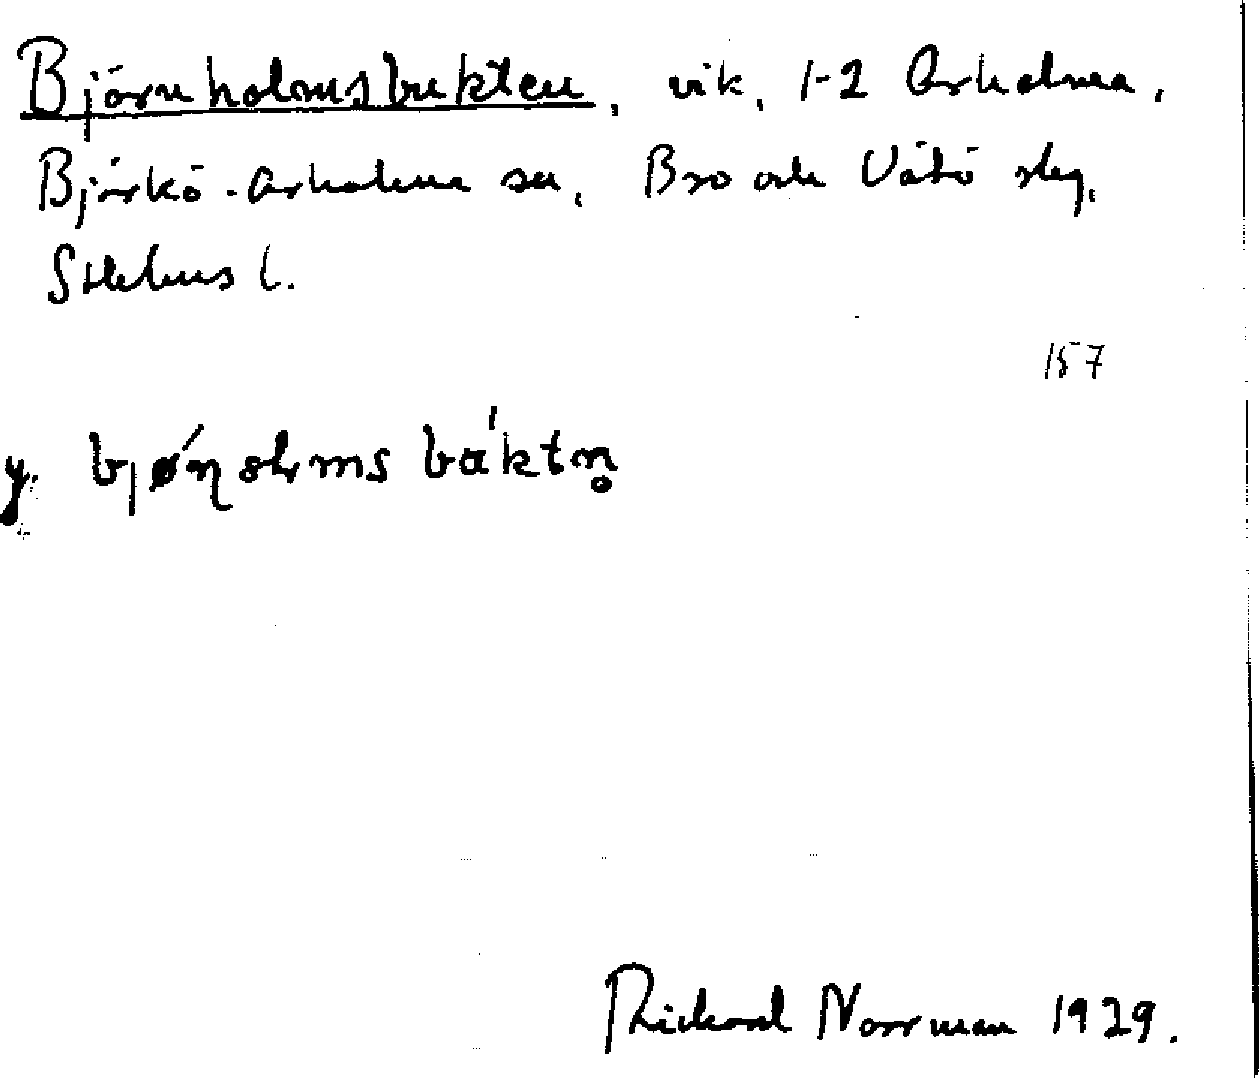 Björnholmsbukten, vik, 1-2 Arholma,
Björkö-Arholma sn, Bro och Vätö skg,
Sthlms l.
157
y. bjǿɳolmsbáktn̥
Rickard Norrman 1929.